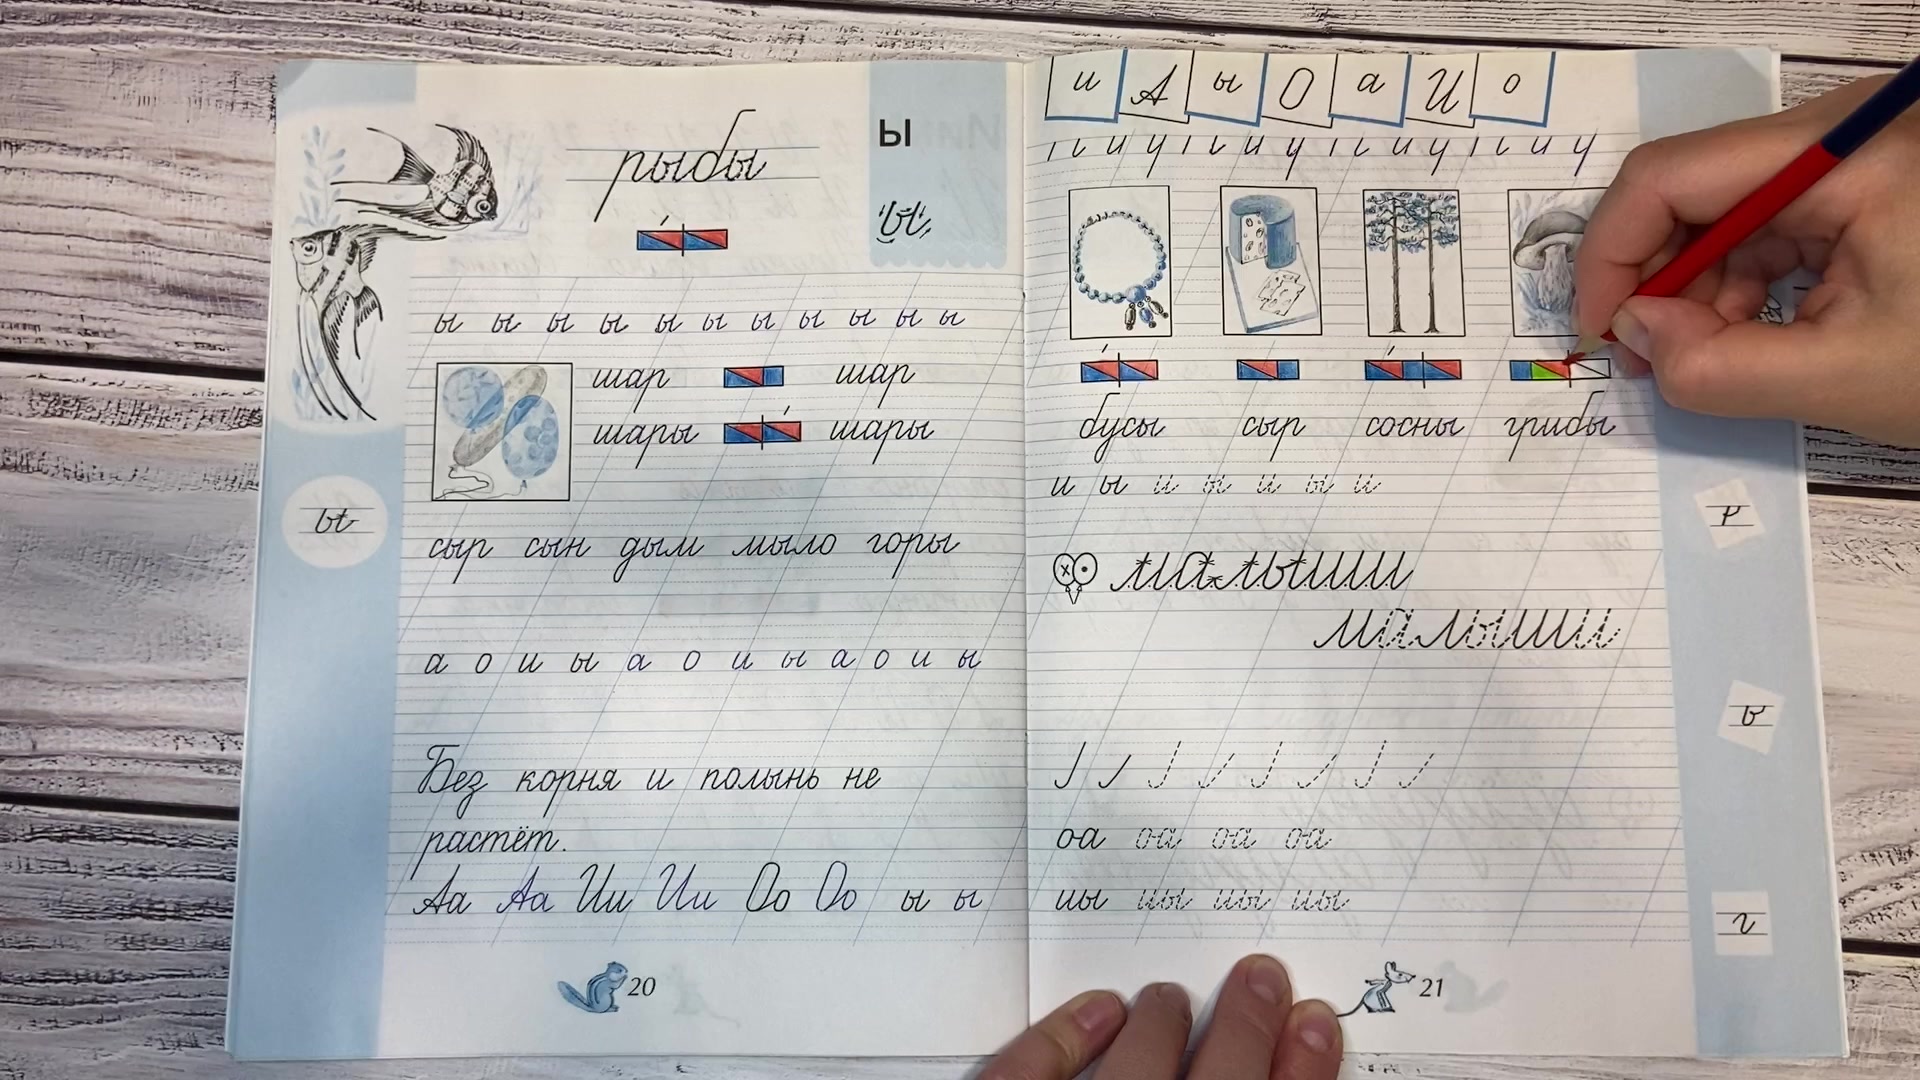 рыбы
ы
ы
ы ы ы ы ы ы ы ы ы ы ы
шар шар
шары шары
ы
сыр сын дым мыло горы
а о и ы а о и ы а о и ы
Без корня и полынь не
растёт.
Аа Аа Ии Ии Оо Оо ы ы
20
и А ы О а И о
бусы сыр сосны грибы
и ы и ы и ы и
малыши
малыши
оа оа оа оа
иы иы иы иы
21